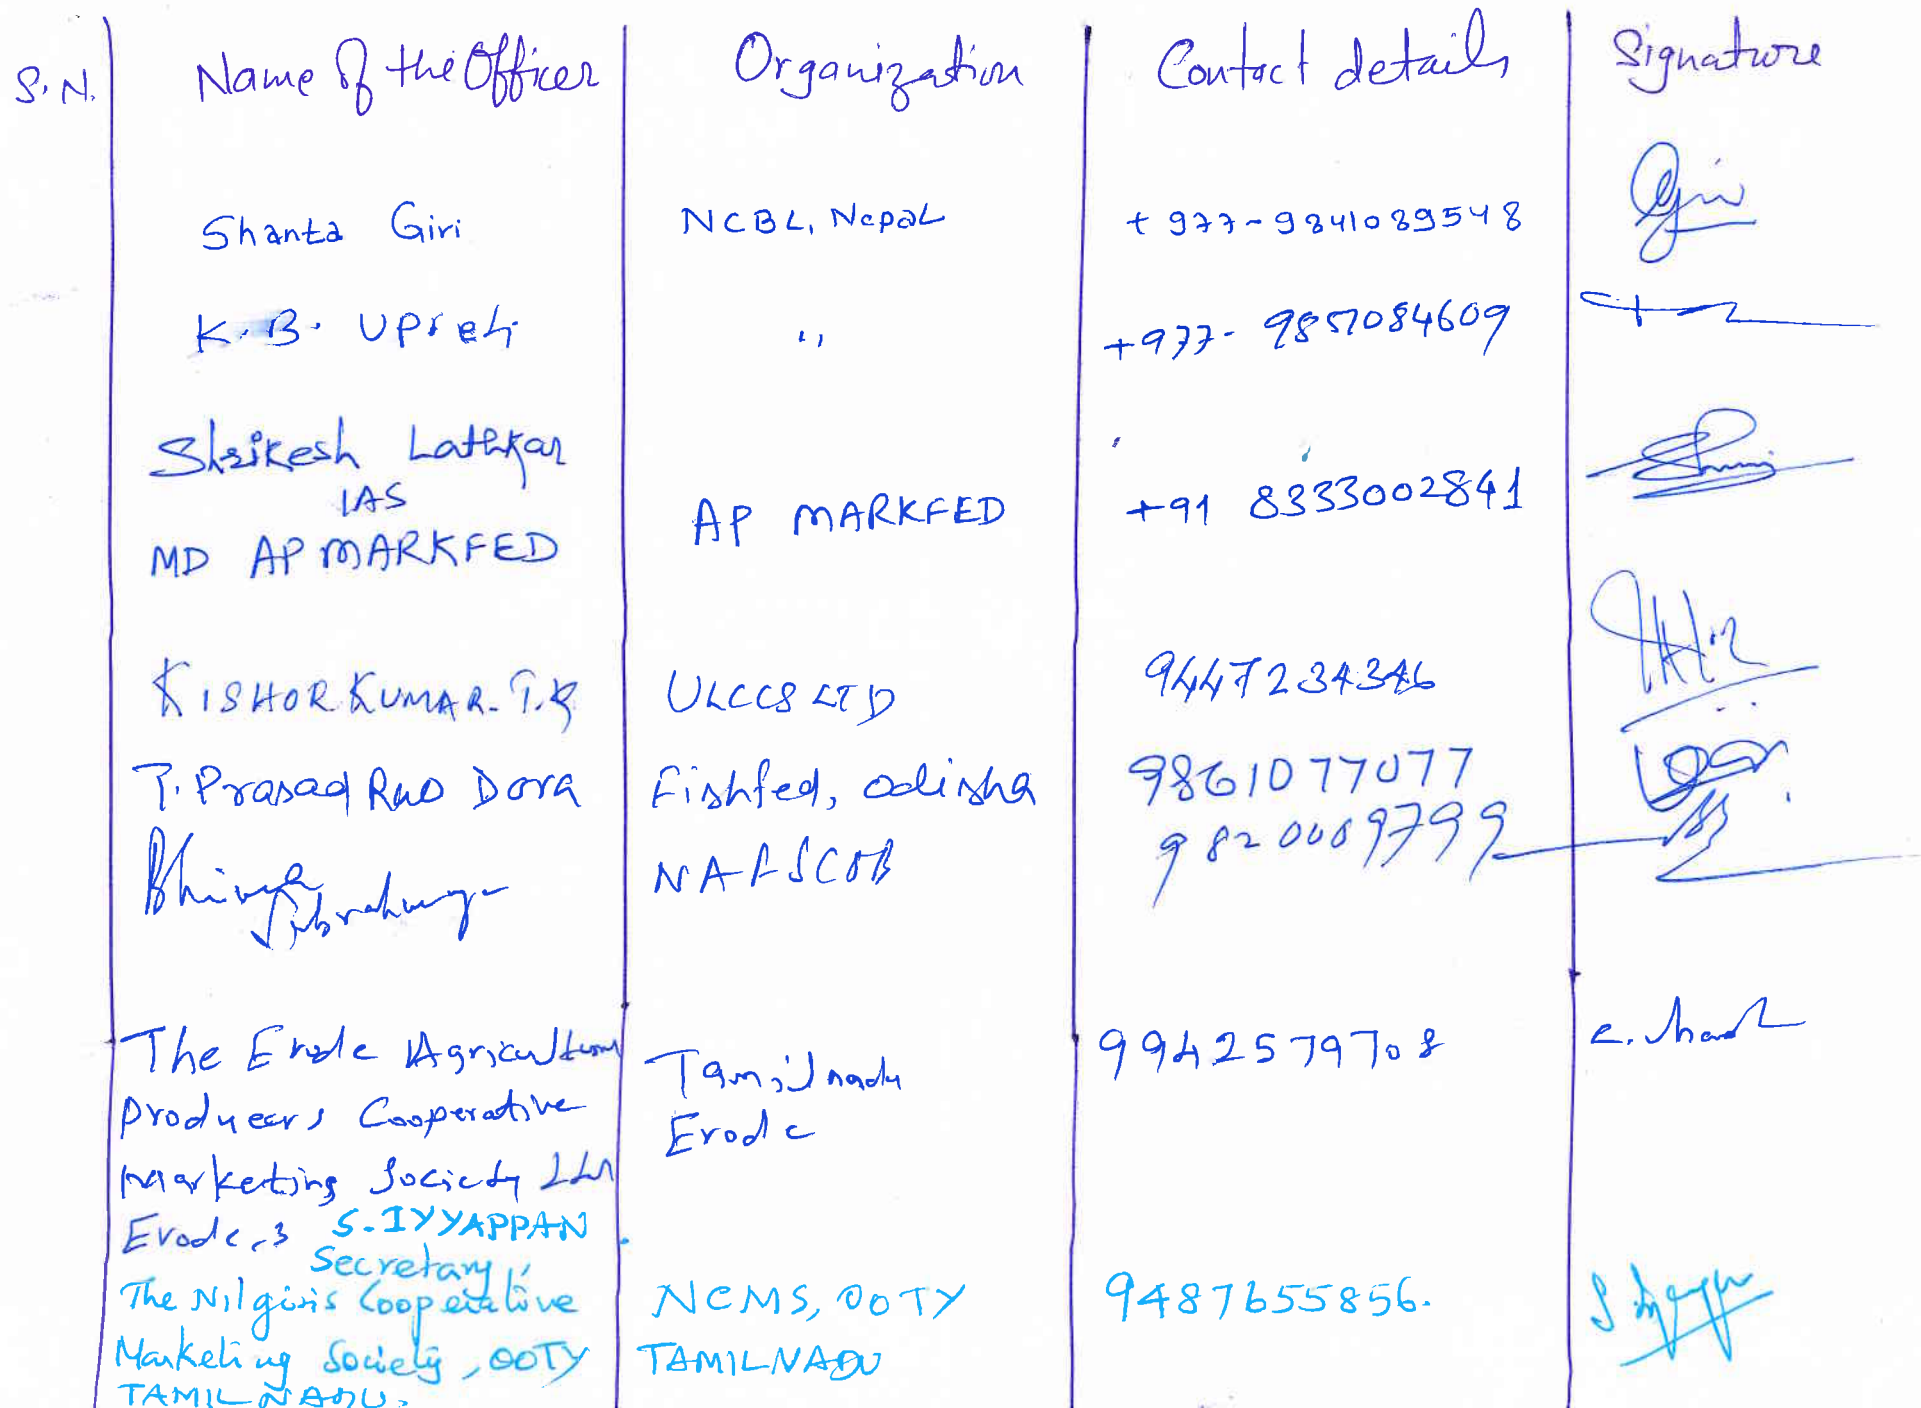 S.N. Name of the Officer Organization Contact details Signature
Shanta Giri NCBL, Nepal +977-9841089548
K.B. Upreti " +977-9857084609
Shrikesh Lathkar
IAS
MD AP MARKFED AP MARKFED +91 8333002841
KISHOR KUMAR. T.K ULCCS LTD 9447234346
T. Prasad Rao Dora Fishfed, Odisha 9861077077
Bhima Subrahmanya NAFSCOB 9820009799
The Erode Agricultural Tamilnadu 9942579708
Producers Cooperative Erode
Marketing Society Ltd
Erode-3 S. IYYAPPAN
Secretary,
The Nilgiris Cooperative NCMS, OOTY 9487655856.
Marketing Society, OOTY TAMILNADU
TAMILNADU.